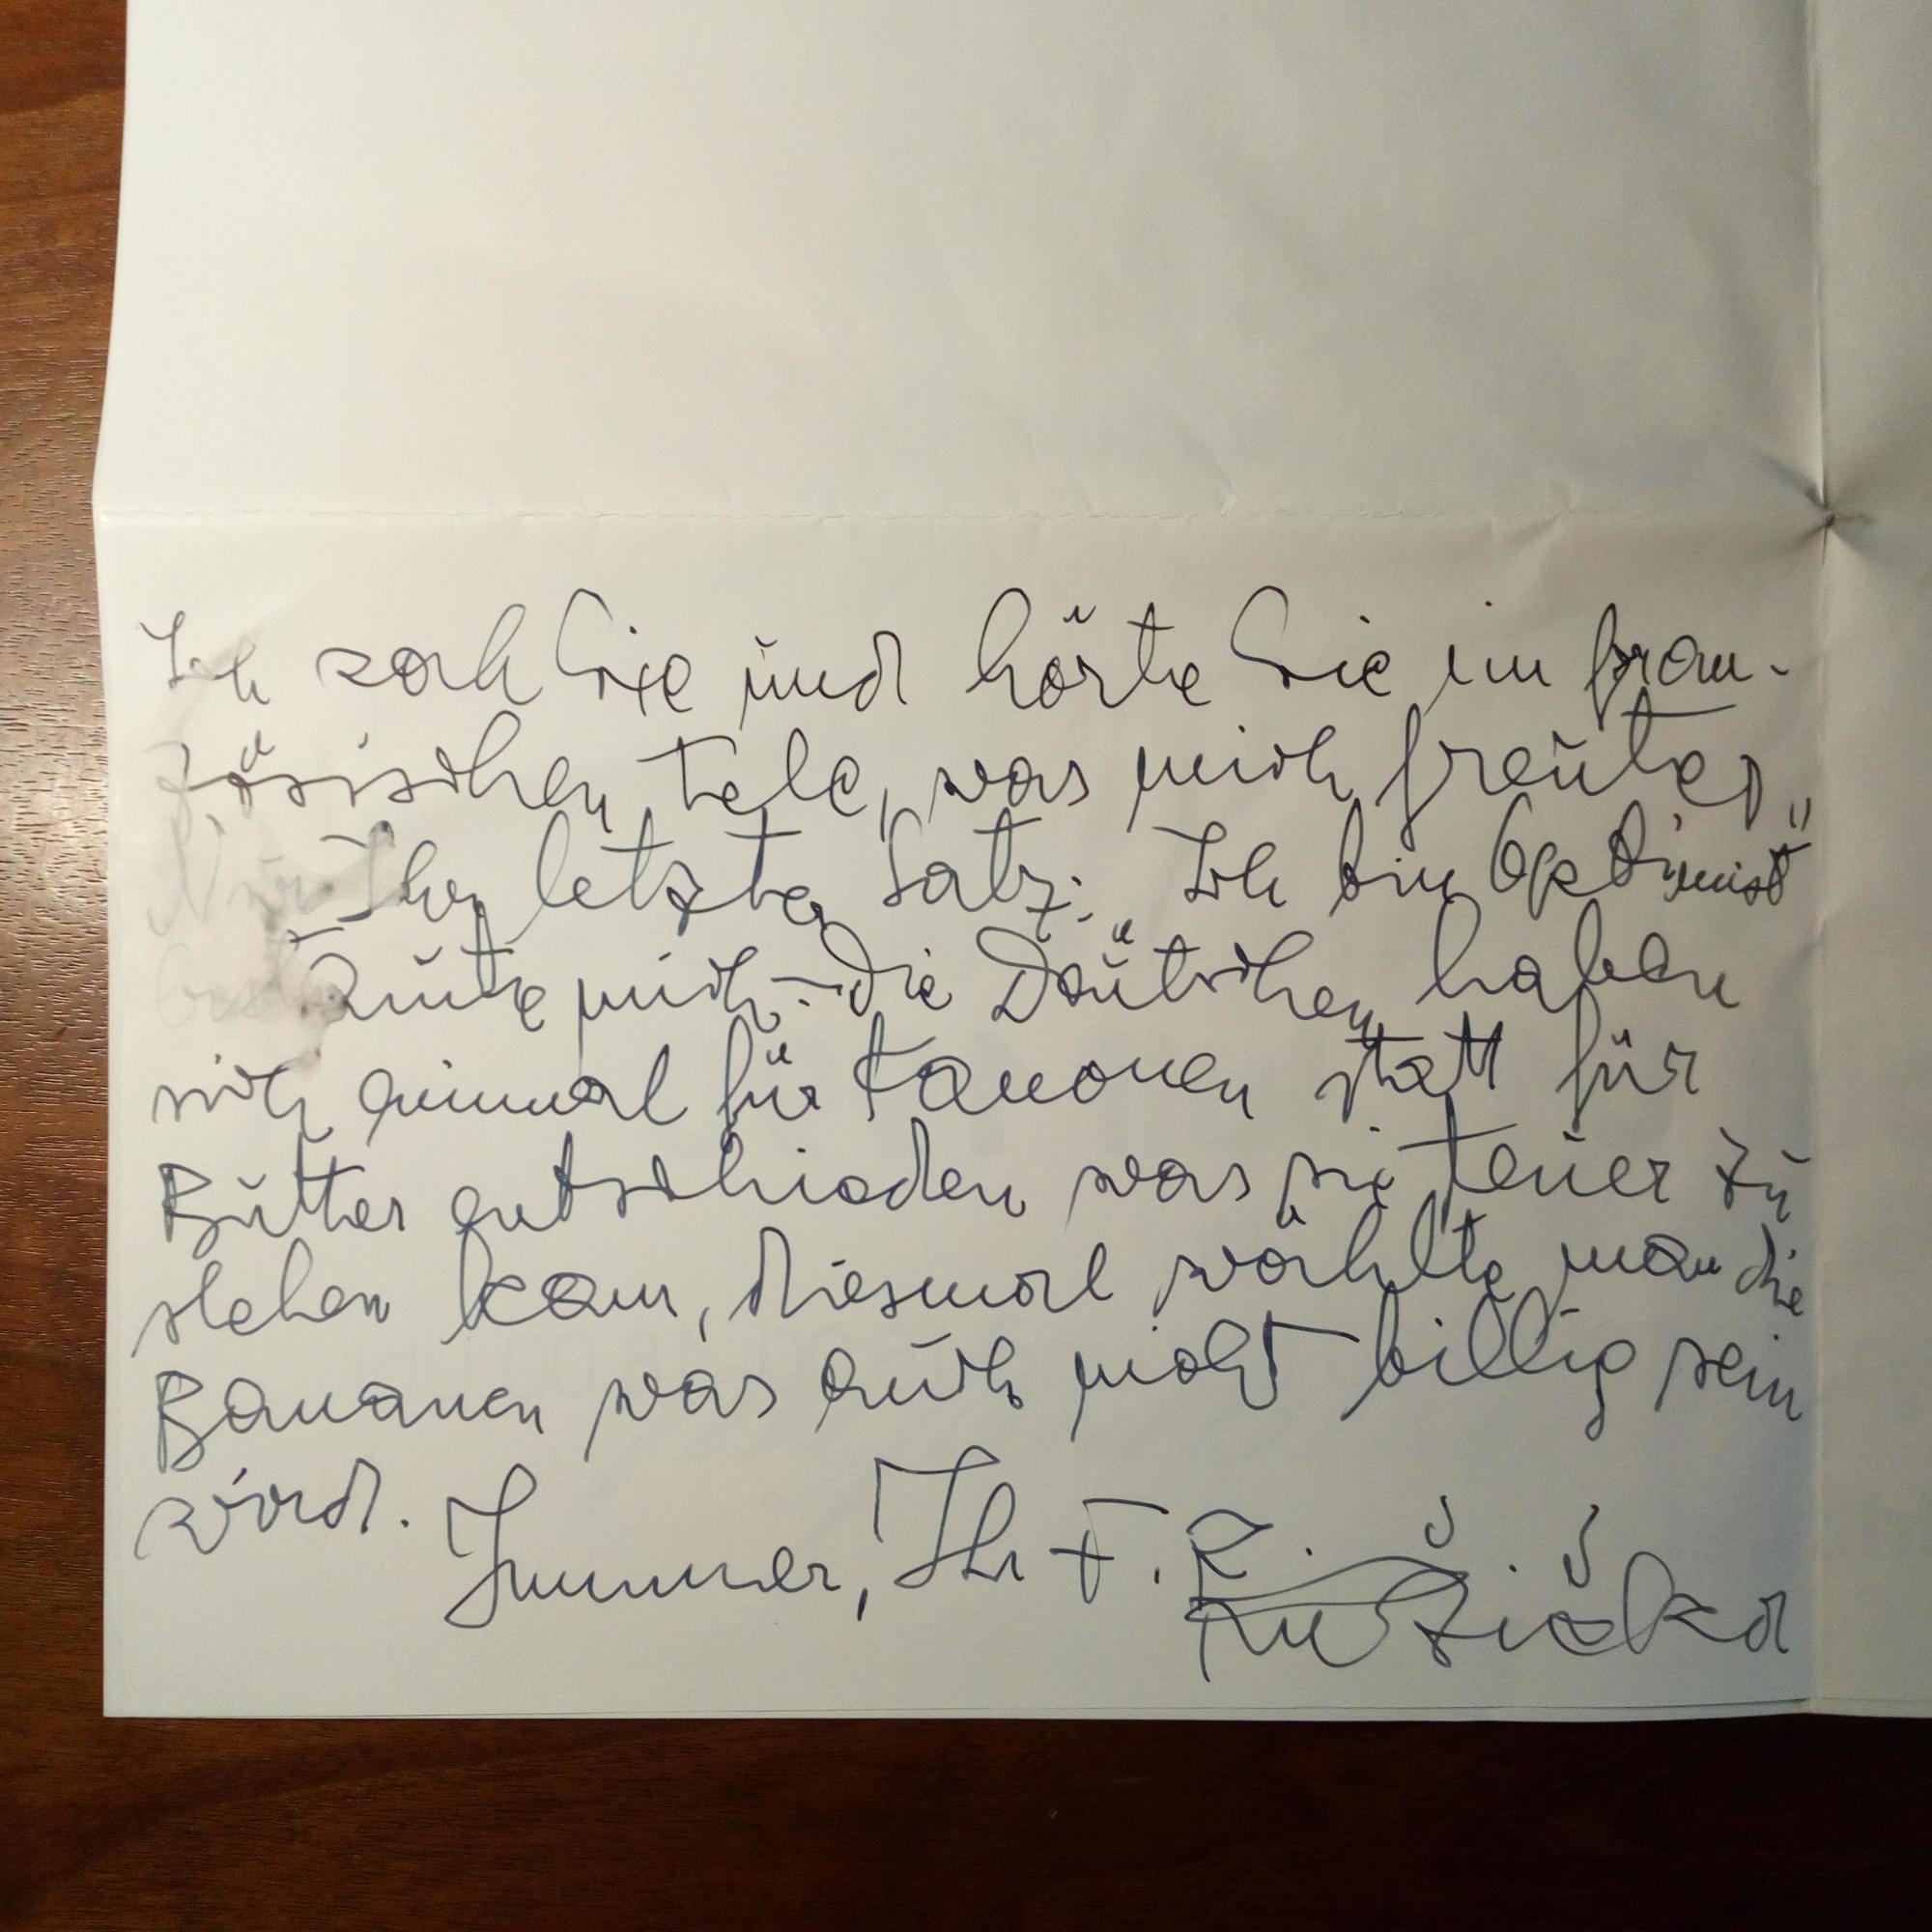 Ich sah Sie und hörte Sie im fran-
zösischen Tele, was mich freute,
Nur Ihr letzter Satz: „Ich bin Optimist"
mich - die Deutschen haben
sich einmal für Kanonen statt für
Butter entschieden was sie teuer zu
stehen kam, diesmal wählte man die
Bananen was auch nicht billig sein
wird.
Immer, Ihr F. R.
Ružička